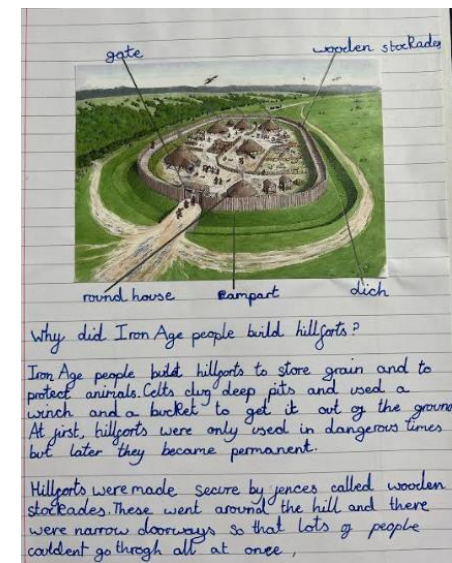 gate
wooden stockades
round house
rampart
dich
Why did Iron Age people build hillforts?
Iron Age people build hillforts to store grain and to
protect animals. Celts dug deep pits and used a
winch and a bucket to get it out of the ground
At first, hillforts were only used in dangerous times
but later they became permanent.
Hillforts were made secure by fences called wooden
stockades. These went around the hill and there
were narrow doorways so that lots of people
couldent go throgh all at once,